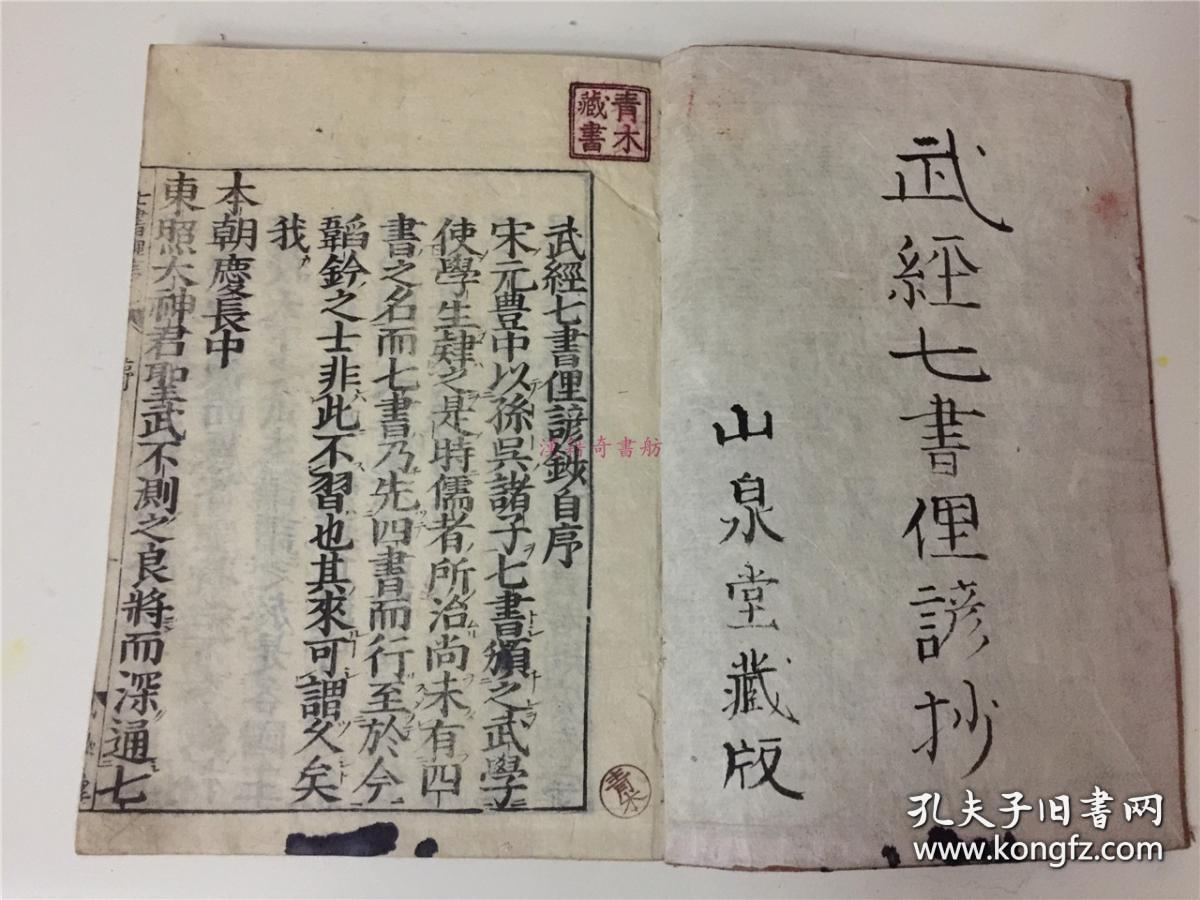 武經七書俚諺抄
山泉堂藏版
青木藏書
武經七書俚諺鈔自序
宋元豊中以孫吳諸子七書頒之武學
使學生肄之是時儒者所治尚未有四
書之名而七書乃先四書而行至於今
韜鈐之士非此不習也其來可謂久矣
我
本朝慶長中
東照大神君聖武不測之良將而深通七
序
青木
漢籍奇書舫
孔夫子旧书网
www.kongfz.com